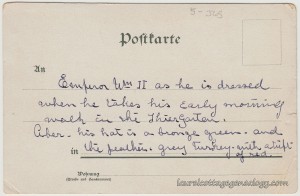 Postkarte
An
Emperor Wm II as he is dressed
when he takes his early morning
walk in the Thiergarten.
his hat is a bronze green. and
in the feather. grey Turkey. with a tuft
of red.
Wohnung
(Straße und Hausnummer)
laurelcottagegenealogy.com